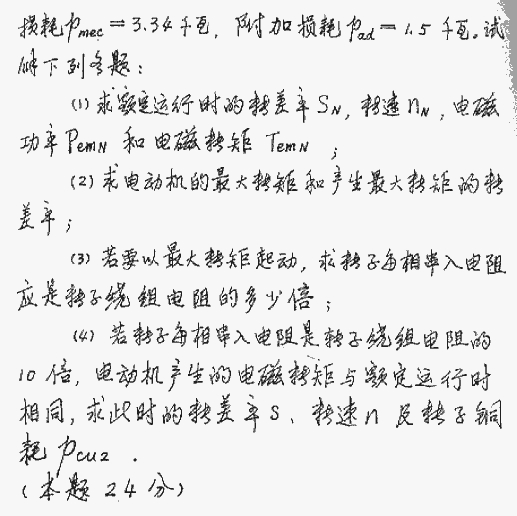 损耗Pmec=3.34千瓦，附加损耗Pad=1.5千瓦。试
解下列各题：
(1) 求额定运行时的转差率SN，转速nN，电磁
功率PemN和电磁转矩TemN；
(2) 求电动机的最大转矩和产生最大转矩的转
差率；
(3) 若要以最大转矩起动，求转子每相串入电阻
应是转子绕组电阻的多少倍；
(4) 若转子每相串入电阻是转子绕组电阻的
10倍，电动机产生的电磁转矩与额定运行时
相同，求此时的转差率S、转速n及转子铜
耗Pcu2．
(本题24分)